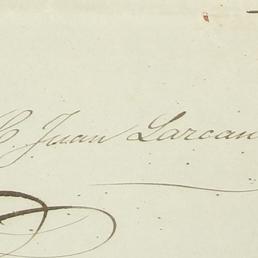 Juan Larcan